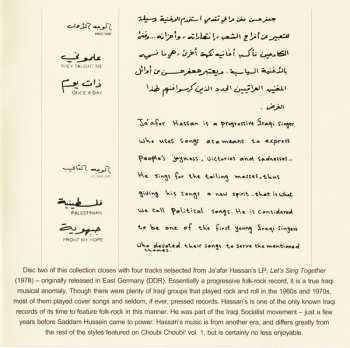 الوجه الأول
علموني
THEY TAUGHT ME
ذات يوم
ONCE A DAY
فلسطينية
PALESTINIAN
FRONT MY HOPE
جعفر حسن مغن ملتزم تقدمي استخدم الاغنية وسيلة
للتعبير عن افراح الشعب وانتصاراته، وأحزانه.
الكادحين
بالأغنية السياسية. ويعتبر جعفر حسن من أوائل
المغنين العراقيين الجدد الذين كرسوا فنهم لهذا
الغرض.
Ja'afer Hassan is a progressive Iraqi singer
who uses songs as a means to express
People's joyness, victories and sadnesses..
He sings for the toiling masses, thus
giving his songs a new spirit - that is what
we call Political songs. He is considered
to be one of the first young Iraqi singers
who devoted their songs to serve the mentioned
themes.
Disc two of this collection closes with four tracks selsected from Ja'afar Hassan's LP, Let's Sing Together
(1978) – originally released in East Germany (DDR). Essentially a progressive folk-rock record, it is a true Iraqi
musical anomaly. Though there were plenty of Iraqi groups that played rock and roll in the 1960s and 1970s,
most of them played cover songs and seldom, if ever, pressed records. Hassan's is one of the only known Iraqi
records of its time to feature folk-rock in this manner. He was part of the Iraqi Socialist movement – just a few
years before Saddam Hussein came to power. Hassan's music is from another era, and differs greatly from
the rest of the styles featured on Choubi Choubi! vol. 1, but is certainly no less enjoyable.